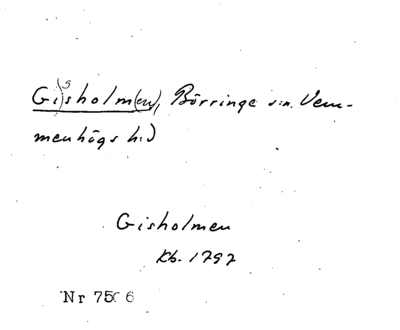 Gi(s)sholm(en), Börringe sn. Vem-
menhögs hd
Gisholmen
Kb. 1797
Nr 75 6